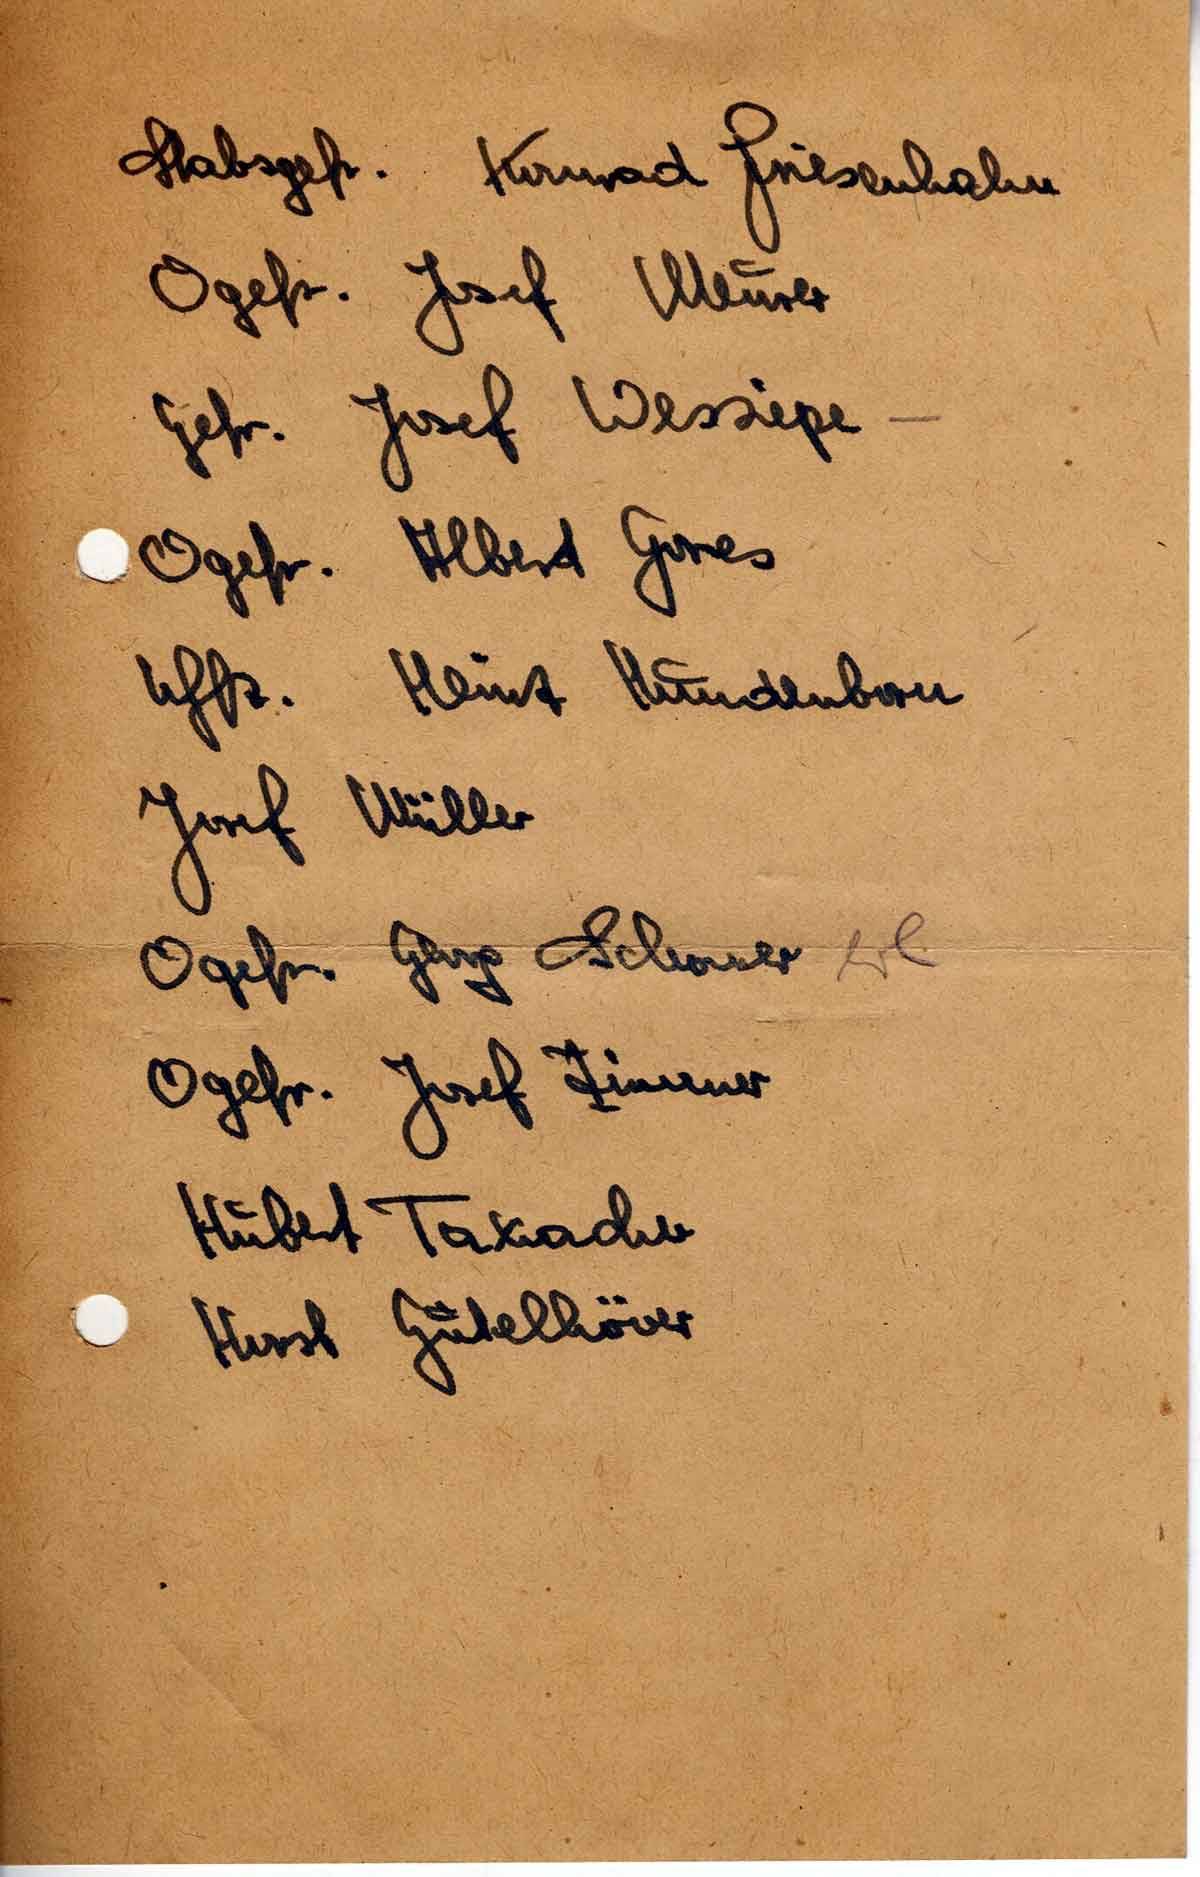 Stabsgefr. Konrad Friesenhahn
Ogefr. Josef Meurer
Gefr. Josef Wessiepe –
Ogefr. Albert Gores
Uffz. Heinz Hundenborn
Josef Müller
Ogefr. Georg Schoner erl.
Ogefr. Josef Zimmer
Hubert Taxacher
Horst Gütelhöver